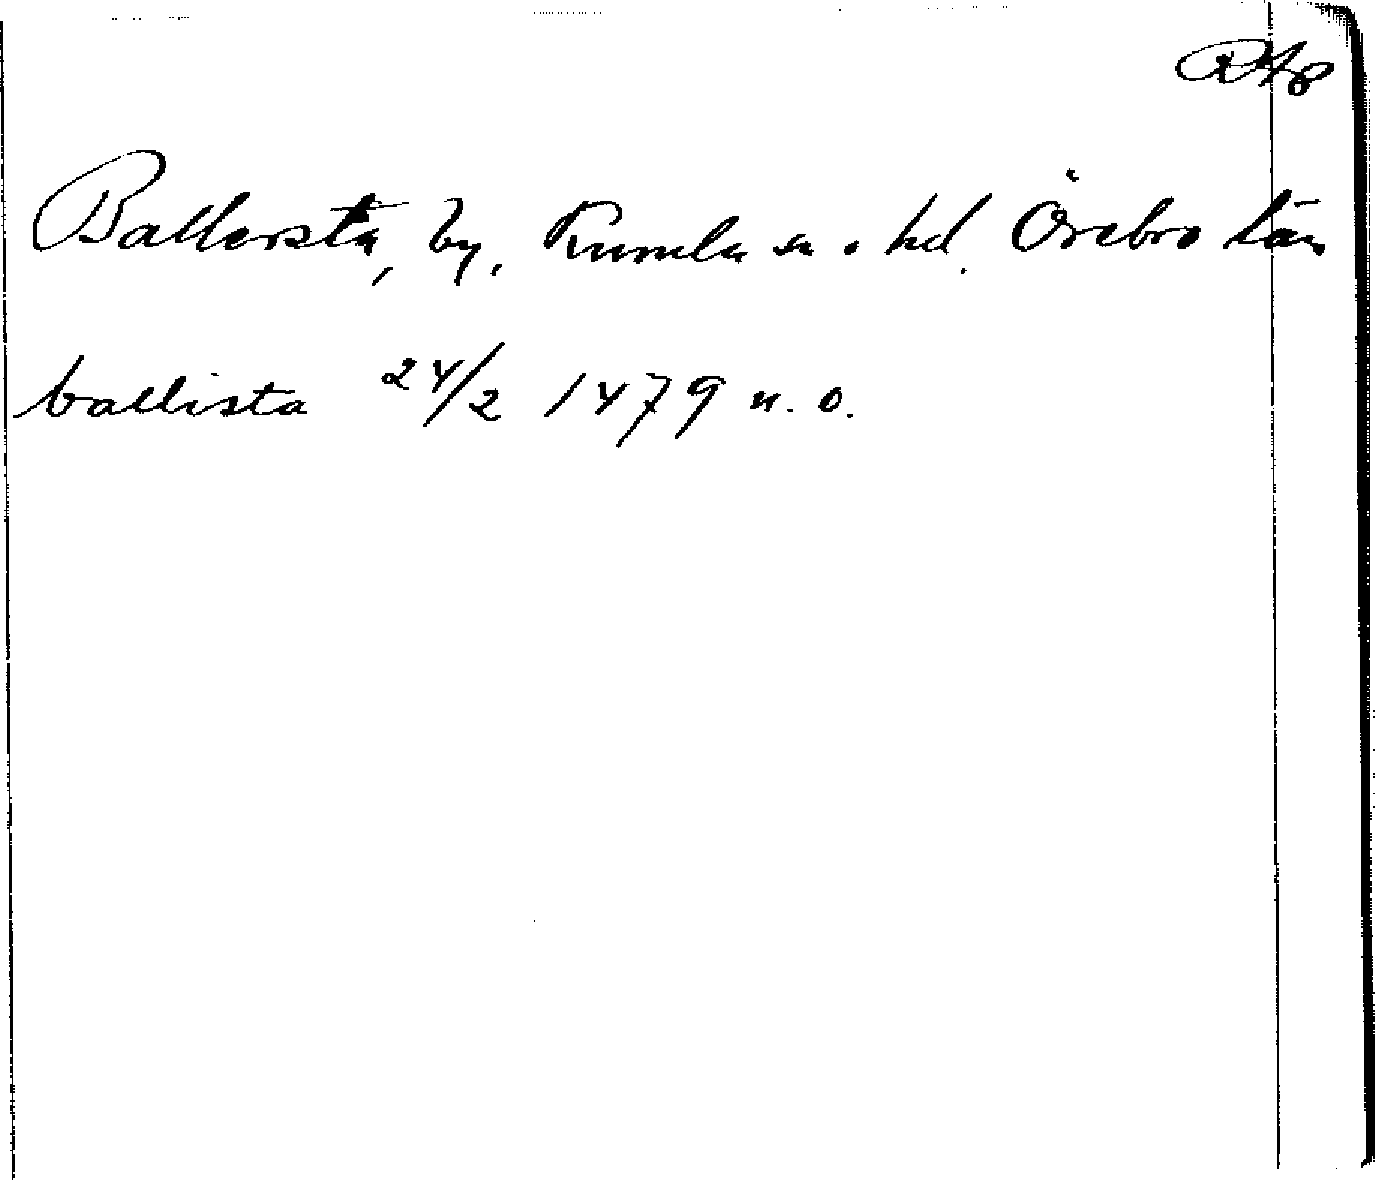 RAp
Ballersta, by, Kumla sn o. hd. Örebro län
ballista 24/2 1479 n. o.